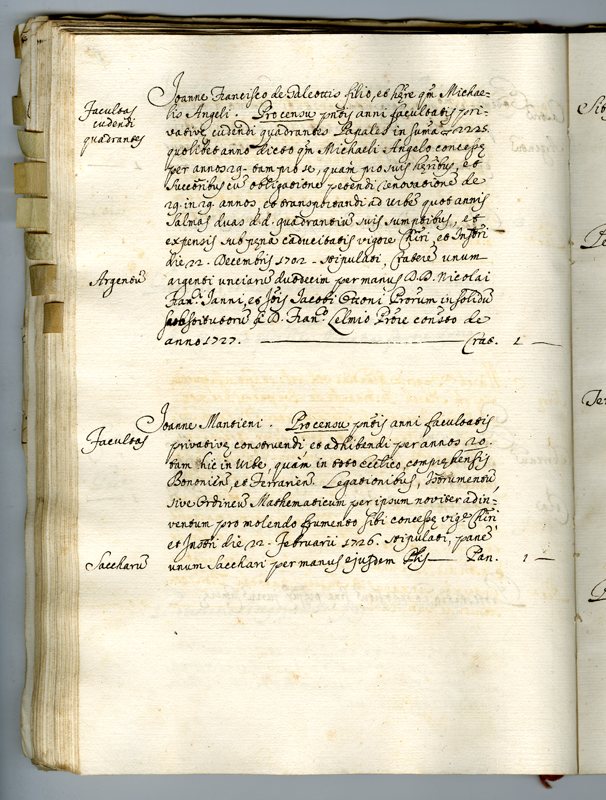 Joanne Francisco de Galeottis filio, et hęre qm̄ Michae-
lis Angeli. Pro censu pn̄tis anni facultatis pri-
Facultas
cudendi
quadrantes
vativę cudendi quadrantes Papales in summa
quolibet anno dicto qm̄ Michaeli Angelo concessę
per annos 29. tam pro se, quam pro suis hęribus, et
succribus cū obligatione petendi renovationē de
29. in 29. annos, et transportandi ad Urbē quot annis
salmas duas d.d. quadrantiū suis sumptibus, et
expensis sub pęna caducitatis vigore Chiri, et Instri
die 22. Decembris 1702. stipulati, Craterē unum
Argentū
argenti unciarū duodecim per manus D.D. Nicolai
Franci. Janni, et Jacobi Ottoni Prorum in solidū
substitutorū a D. Franco. Celmio Prore constito de
anno 1727. Crat. 1 —
Joanne Mantieni. Pro censu pn̄tis anni facultatis
Facultas
privativę construendi et adhibendi per annos 20.
tam hic in Urbe, quam in toto Ecclico, comprehensis
Bononien̄, et Ferrarien̄ Legationibus, Instrumentū
sive Ordineū Mathematicum per ipsum noviter adin-
ventum pro molendo frumento sibi concessę vigre Chiri
et Instri die 22. Februarii 1726. stipulati, panē
Saccharū
unum Sacchari per manus ejusdem — Pan. 1 —